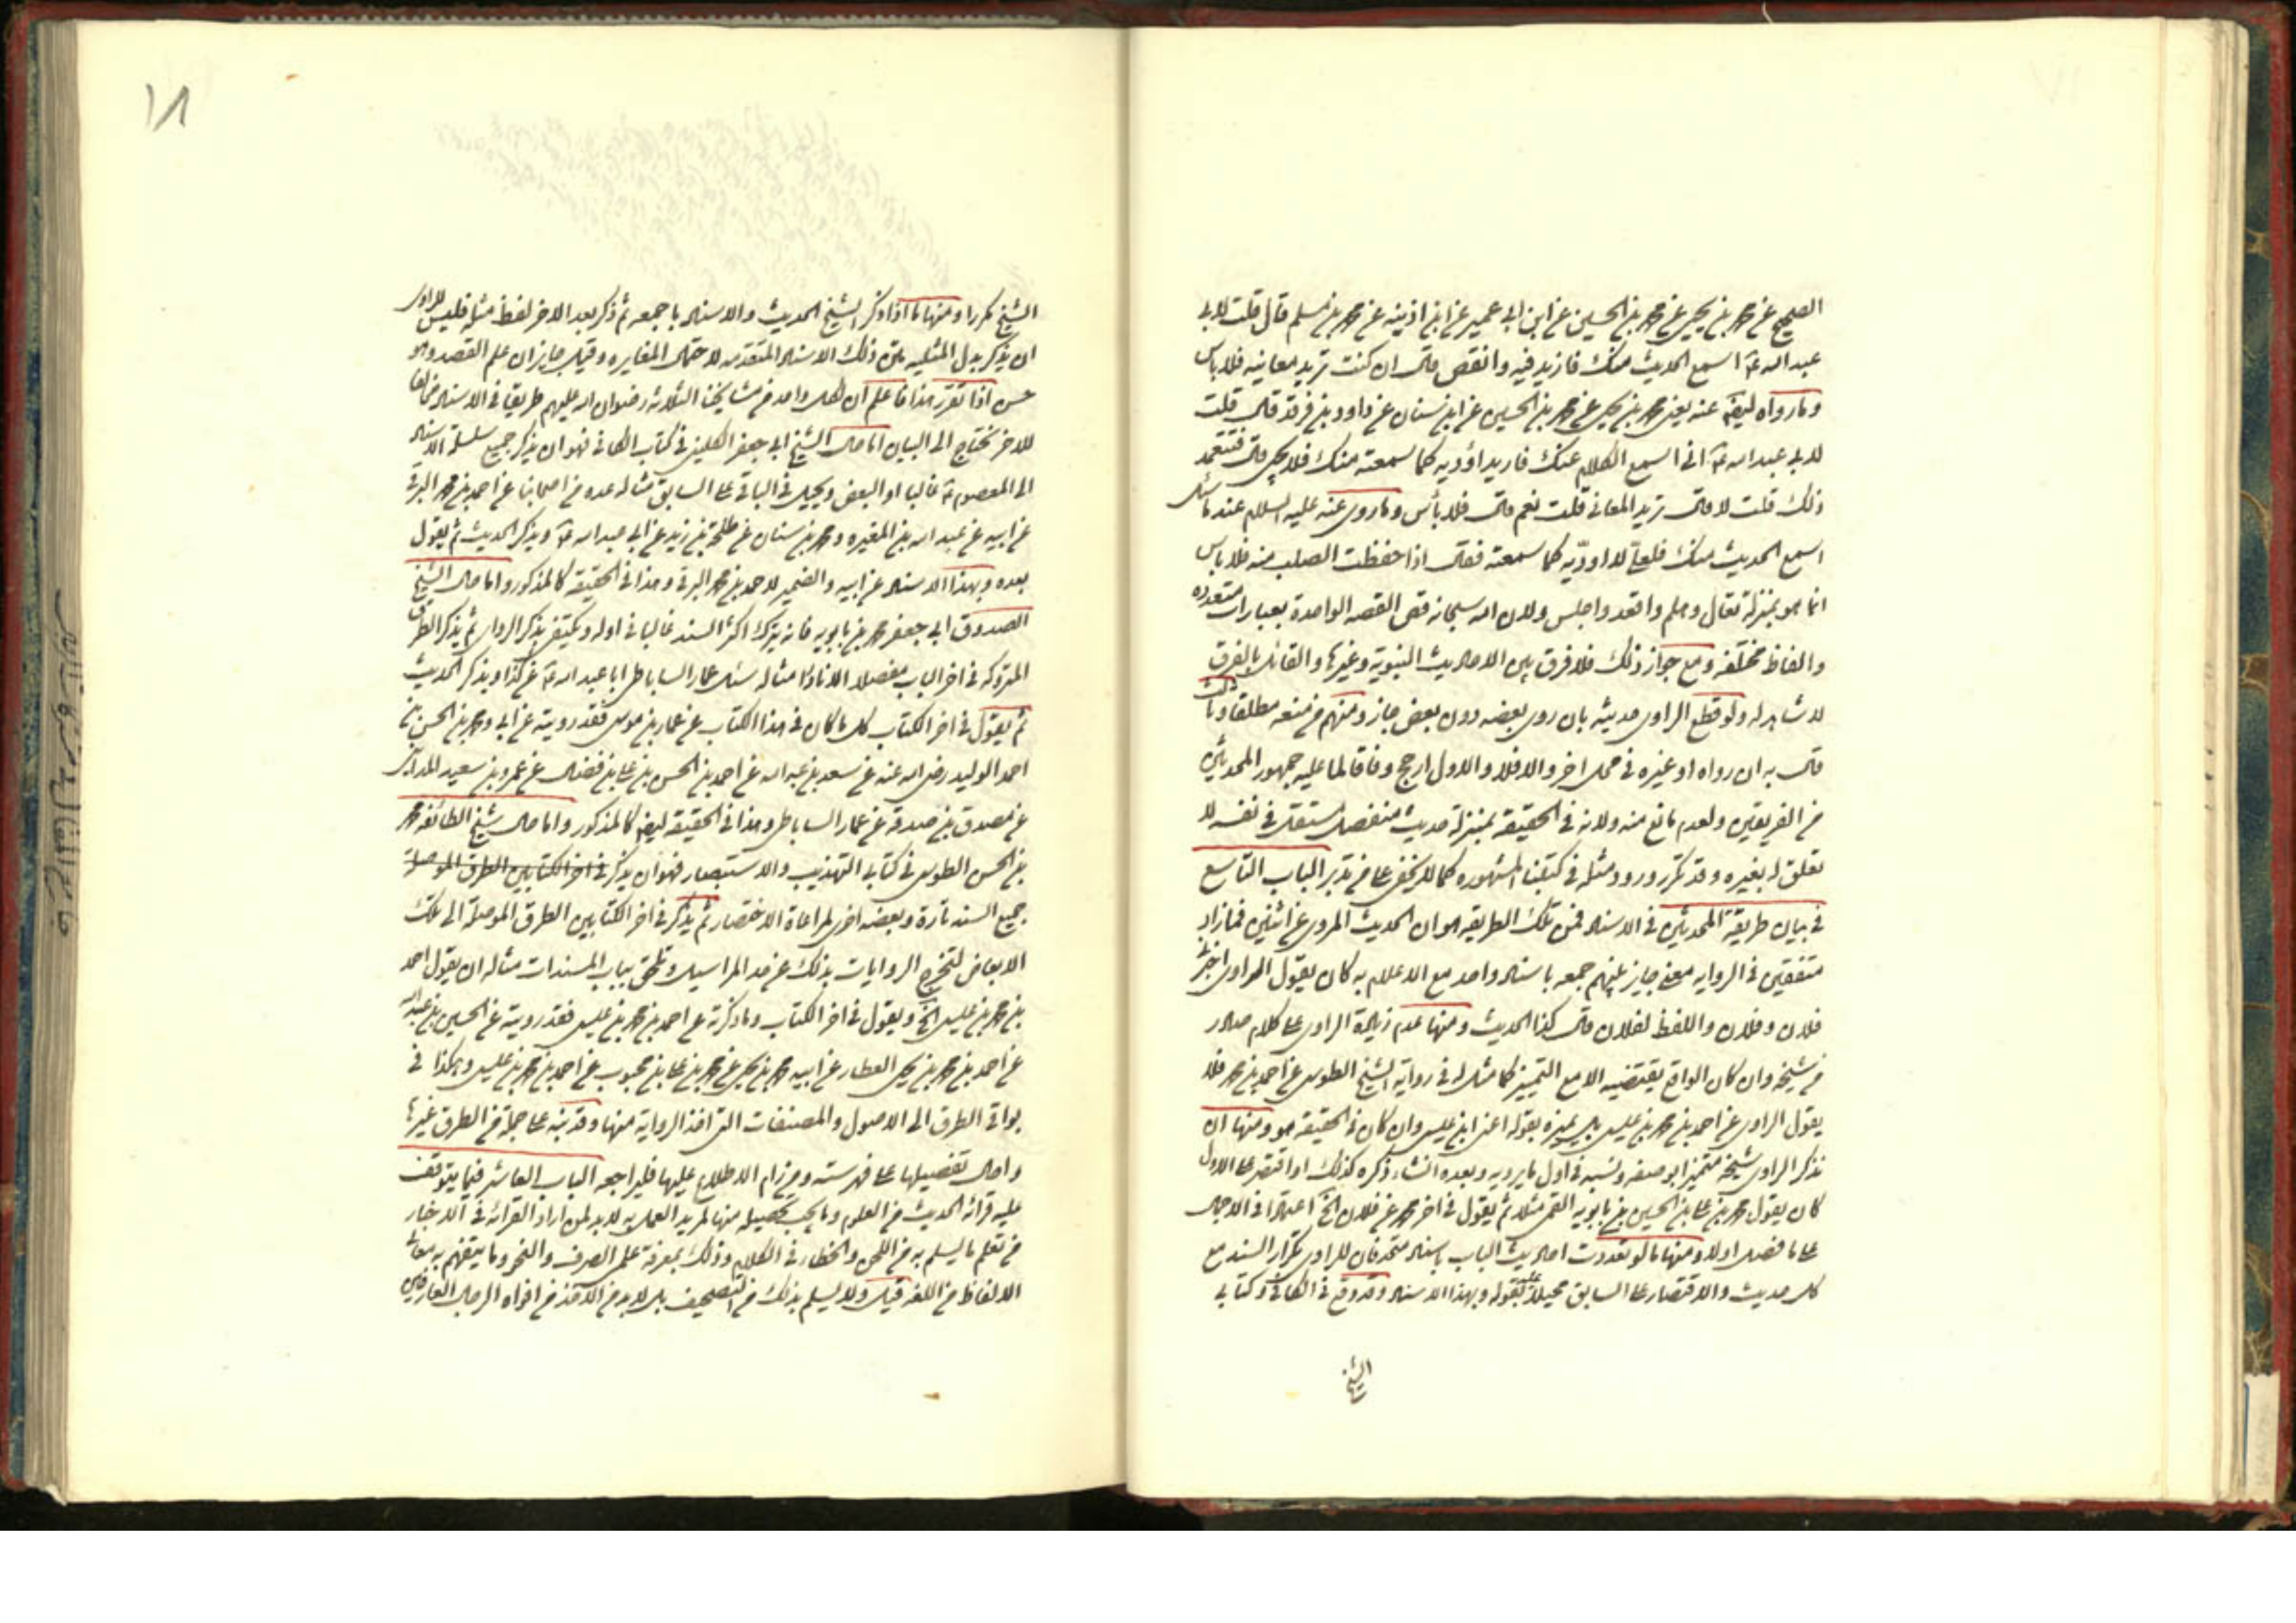 الصحيح عن محمد بن يحيى عن محمد بن الحسين عن ابن ابي عمير عن ابن اذينه عن محمد بن مسلم قال قلت لابي
عبد الله ع اسمع الحديث منك فازيد فيه وانقص قال ان كنت تريد معانيه فلا باس
وما رواه ايضا عنه يعني محمد بن يحيى عن محمد بن الحسين عن ابن سنان عن داود بن فرقد قال قلت
لابي عبد الله ع اني اسمع الكلام عنك فاريد اؤديه كما سمعته منك فلا يجئ قال فتتعمد
ذلك قلت لا قال تريد المعاني قلت نعم قال فلا بأس وما روى عنه عليه السلام عندما سئل
اسمع الحديث منك فلعلّ لا اودّيه كما سمعته فقال اذا حفظت الصلب منه فلا باس
انما هو بمنزلة تعال وهلم واقعد واجلس ولان الله سبحانه قص القصه الواحدة بعبارات متعدده
والفاظ مختلفه ومع جواز ذلك فلا فرق بين الاحاديث النبوية وغيرها والقائل بالفرق
لا شاهد له ولو قطع الراوى حديثه بان روى بعضه دون بعض جاز ومنهم من منعه مطلقا وثالث
قال به ان رواه او غيره في محل اخر والا فلا والاول ارجح وفاقا لما عليه جمهور المحدثين
من الفريقين ولعدم مانع منه ولانه في الحقيقة بمنزلة حديث منفصل مستقل في نفسه لا
تعلق له بغيره وقد تكرر ورود مثله في كتبنا المشهوره كما لا يخفى على من تدبر الباب التاسع
في بيان طريقة المحدثين في الاسناد فمن تلك الطريقه هو ان الحديث المروى عن اثنين فما زاد
متفقين في الروايه معنى جايز لهم جمعه باسناد واحد مع الاعلام به كان يقول الراوى اخبرنا
فلان وفلان واللفظ لفلان قال كذا الحديث ومنها عدم زيادة الراوى على كلام صادر
من شيخه وان كان الواقع يقتضيه الا مع التمييز كما مثل له في رواية الشيخ الطوسى عن احمد بن محمد فلا
يقول الراوى عن احمد بن محمد بن عيسى بل يميزه بقوله اعنى ابن عيسى وان كان في الحقيقة هو ومنها ان
يذكر الراوى شيخه متميزا بوصفه ونسبه في اول ما يرويه وبعده انشاء ذكره كذلك او اقتصر على الاول
كان يقول محمد بن على بن الحسين بن بابويه القمى مثلا ثم يقول في اخر محمد عن فلان الخ اعتمادا في الاجمال
على ما فصل اولا ومنها ما لو تعددت احاديث الباب باسناد متحد فان للراوى تكرار السند مع
كل حديث والاقتصار على السابق محيلا عليه بقوله وبهذا الاسناد وقد وقع في الكافى وكتابي
الشيخ
١٨
الشيخ مكررا ومنها ما اذا ذكر الشيخ الحديث والاسناد باجمعه ثم ذكر بعد الاخر لفظ مثله فليس للراوى
ان يذكر بدل المثليه متن ذلك الاسناد المتقدمه لاحتمال المغايره وقيل جايز ان علم القصد وهو
حسن اذا تقرر هذا فاعلم ان لكل واحد من مشايخنا الثلاثه رضوان الله عليهم طريقا في الاسناد مخالفا
للاخر يحتاج الى البيان اما حال الشيخ ابي جعفر الكلينى في كتاب الكافي فهو ان يذكر جميع سلسلة الاسناد
الى المعصوم ع غالبا او البعض ويحيل في الباقى على السابق مثاله عده من اصحابنا عن احمد بن محمد البرقى
عن ابيه عن عبد الله بن المغيره ومحمد بن سنان عن طلحة بن زيد عن ابي عبد الله ع ويذكر الحديث ثم يقول
بعده وبهذا الاسناد عن ابيه والضمير لاحمد بن محمد البرقى وهذا في الحقيقة كالمذكور واما حال الشيخ
الصدوق ابي جعفر محمد بن بابويه فانه يترك اكثر السند غالبا في اوله ويكتفى بذكر الراوى ثم يذكر الطرق
المتروكه في اخر الباب مفصلا الا نادرا مثاله سئل عمار الساباطى ابا عبد الله ع عن كذا ويذكر الحديث
ثم يقول في اخر الكتاب كل ما كان في هذا الكتاب عن عمار بن موسى فقد رويته عن ابي ومحمد بن الحسن بن
احمد الوليد رضى الله عنه عن سعد بن عبد الله عن احمد بن الحسن بن على بن فضال عن عمرو بن سعيد المدايني
عن مصدق بن صدقه عن عمار الساباطى وهذا في الحقيقة ايضا كالمذكور واما حال شيخ الطائفه محمد
بن الحسن الطوسى في كتابي التهذيب والاستبصار فهو ان يذكر في اخر الكتابين الطرق الموصلة
جميع السند تارة وبعضه اخرى لمراعاة الاختصار ثم يذكر في اخر الكتابين الطرق الموصلة الى تلك
الابعاض لتخرج الروايات بذلك عن حد المراسيل وتلحق بباب المسندات مثاله ان يقول احمد
بن محمد بن عيسى الخ ويقول في اخر الكتاب وما ذكرته عن احمد بن محمد بن عيسى فقد رويته عن الحسين بن عبد الله
عن احمد بن محمد بن يحيى العطار عن ابيه محمد بن يحيى عن محمد بن على بن محبوب عن احمد بن محمد بن عيسى وهكذا في
بواقى الطرق الى الاصول والمصنفات التى اخذ الرواية منها وقد نبه على جملة من الطرق غيرها
واحال تفصيلها على فهرسته ومن رام الاطلاع عليها فليراجعه الباب العاشر فيما يتوقف
عليه قرائة الحديث من العلوم وما يجب تحصيله منها لمريد العمل به لابد لمن اراد القرائة في الاخبار
من تعلم ما يسلم به من اللحن والخطاء في الكلام وذلك بمعرفة علم الصرف والنحو وما يتفهم به معاني
الالفاظ من اللغه قيل ولا يسلم بذلك من التصحيف بل لابد من الاخذ من افواه الرجال العارفين